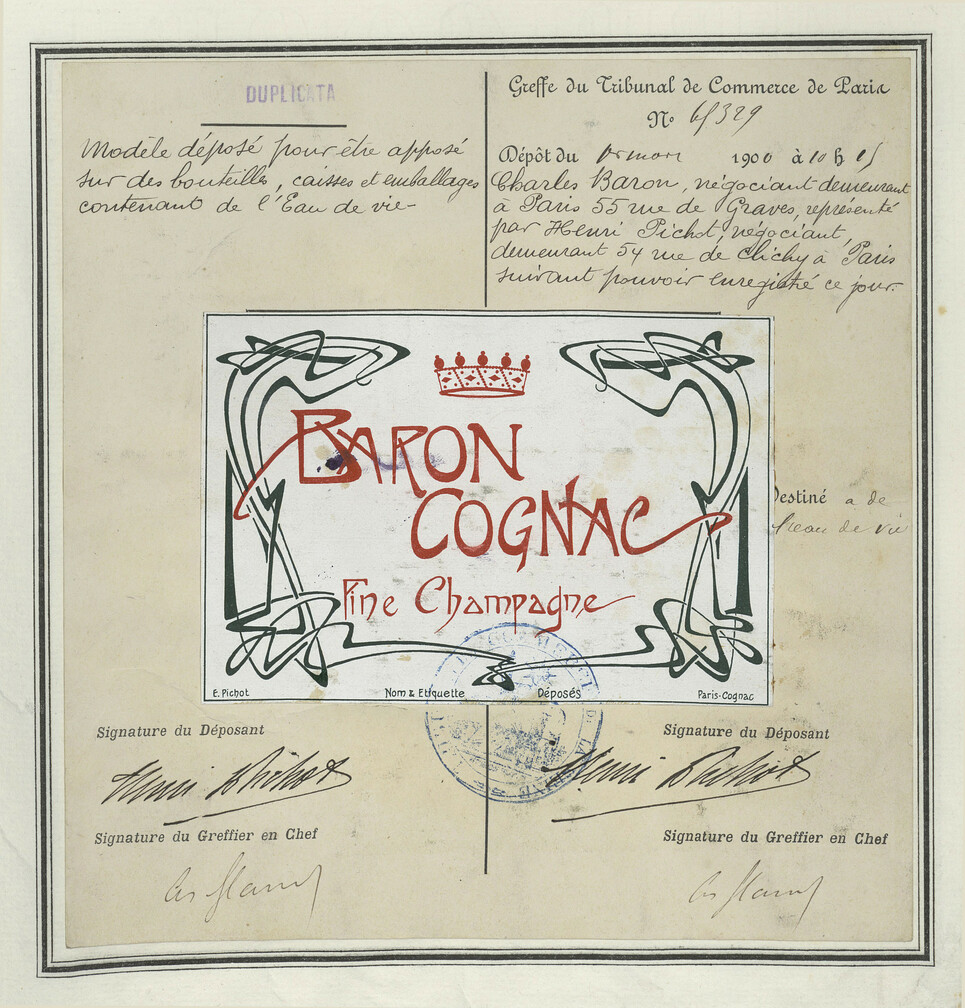 DUPLICATA
Modèle déposé pour être apposé
sur des bouteilles, caisses et emballages
contenant de l'Eau de vie-
Greffe du Tribunal de Commerce de Paris
No 329
Dépôt du mars 1900 à 10 h 15
Charles Baron, négociant demeurant
à Paris 55 rue de Graves, représenté
par Henri Pichot, négociant,
demeurant 54 rue de Clichy à Paris
suivant pouvoir enregistré ce jour.
BARON
COGNAC
Fine Champagne
E. Pichot Nom & Etiquette Déposés Paris-Cognac
Destiné a de
l'eau de vie
Signature du Déposant
Henri Pichot
Signature du Greffier en Chef
Signature du Déposant
Henri Pichot
Signature du Greffier en Chef